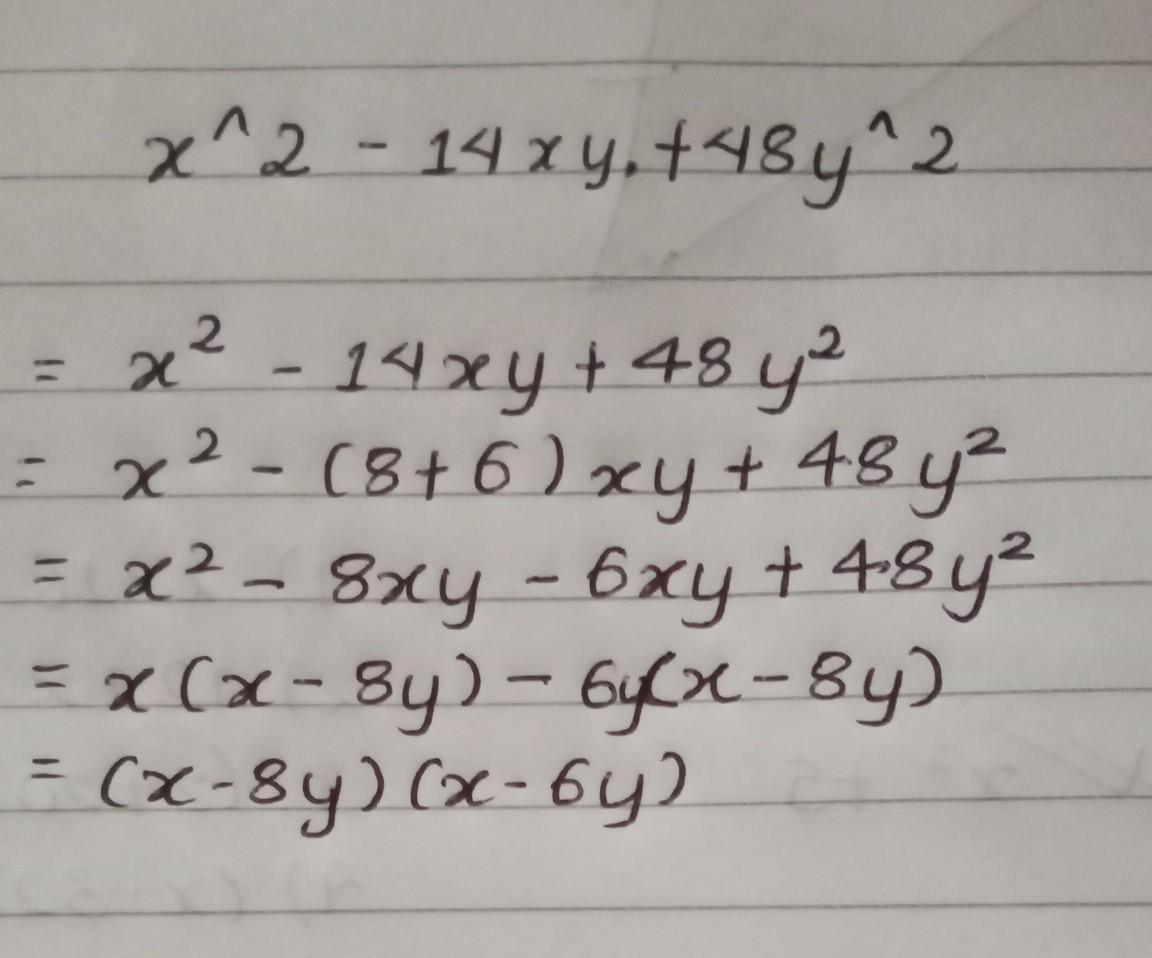 x^2 - 14xy.+48y^2
= x² - 14xy + 48y²
= x² - (8+6)xy + 48y²
= x² - 8xy - 6xy + 48y²
= x(x - 8y) - 6y(x - 8y)
= (x-8y)(x-6y)